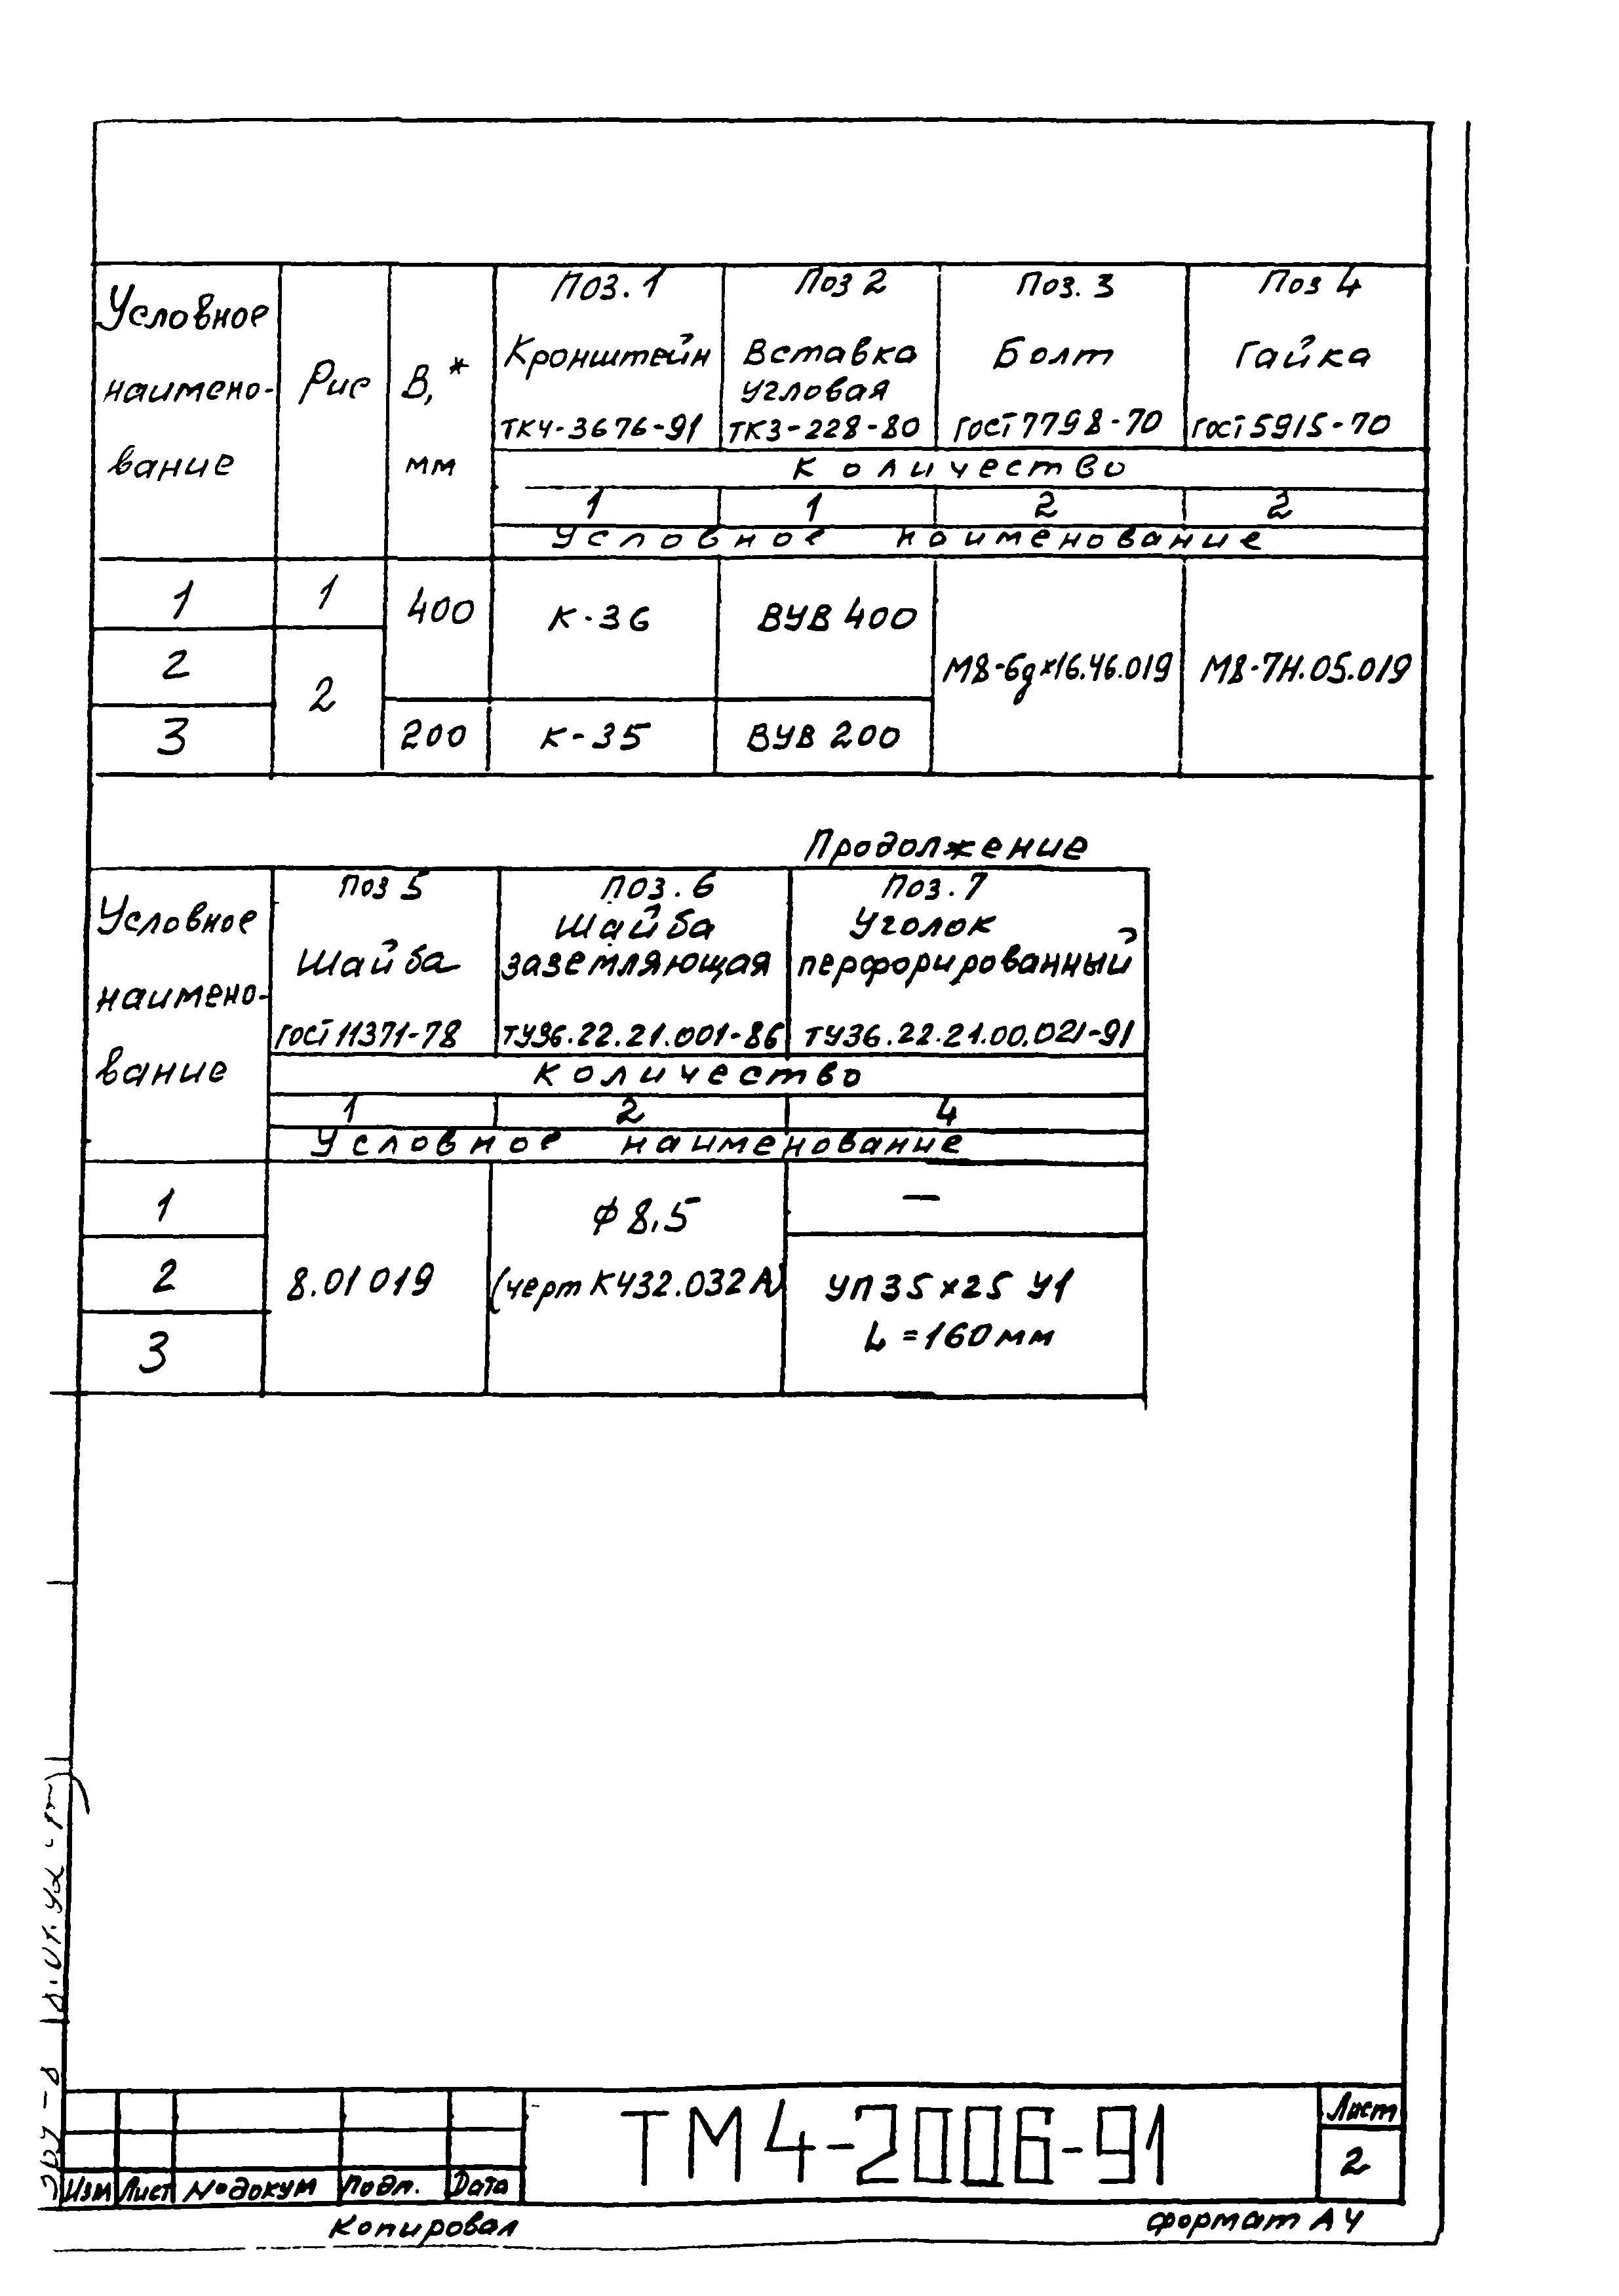 Условное наимено- вание
Рис
В,* мм
Поз. 1 Кронштейн ТК4-3676-91
Поз 2 Вставка угловая ТК3-228-80
Поз. 3 Болт ГОСТ 7798-70
Поз 4 Гайка ГОСТ 5915-70
Количество
1 1 2 2
Условное наименование
1 1 400 К-36 ВУВ 400
2 2 М8-6gx16.46.019 М8-7Н.05.019
3 200 К-35 ВУВ 200
Продолжение
Условное наимено- вание
Поз 5 Шайба ГОСТ 11371-78
Поз. 6 Шайба заземляющая ТУ36.22.21.001-86
Поз. 7 Уголок перфорированный ТУ36.22.21.00.021-91
Количество
1 2 4
Условное наименование
1 ф 8,5 —
2 8.01 019 (черт К432.032А) УП 35х25 У1
3 L = 160 мм
ТМ4-2006-91
Лист
2
Изм Лист № докум Подп. Дата
Копировал формат А4